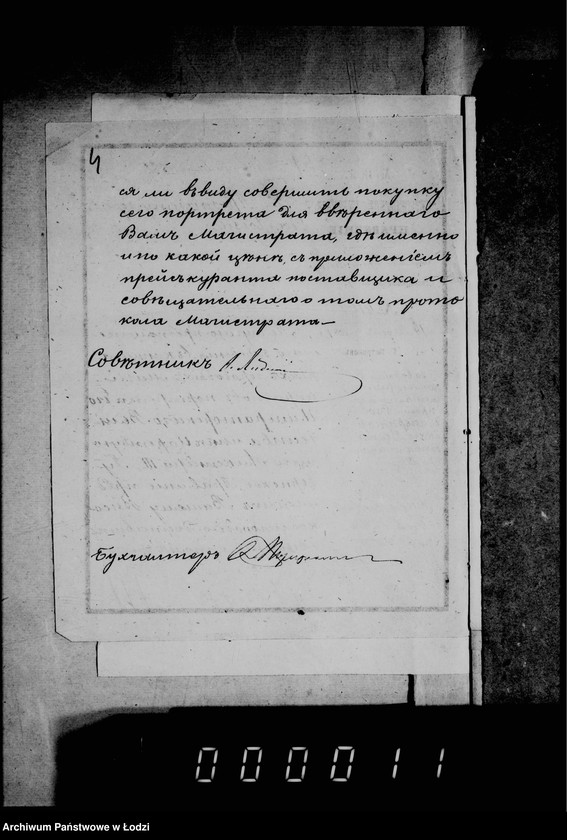 4
ся ли въ виду совершить покупку
сего портрета для ввѣреннаго
Вамъ Магистрата, гдѣ именно
и по какой цѣнѣ, съ приложеніемъ
прейсъ куранта поставщика и
совѣщательнаго о томъ прото
кола Магистрата —
Совѣтникъ
Бухгалтеръ
000011
Archiwum Państwowe w Łodzi